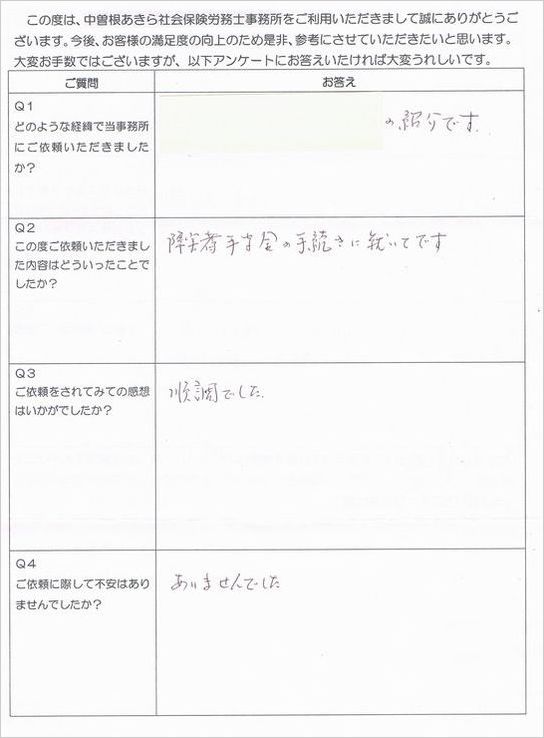 この度は、中曽根あきら社会保険労務士事務所をご利用いただきまして誠にありがとうご
ざいます。今後、お客様の満足度の向上のため是非、参考にさせていただきたいと思います。
大変お手数ではございますが、以下アンケートにお答えいたければ大変うれしいです。
ご質問
お答え
Q1
どのような経緯で当事務所
にご依頼いただきました
か?
の紹介です。
Q2
この度ご依頼いただきまし
た内容はどういったことで
したか?
障害者手当金の手続きに就いてです
Q3
ご依頼をされてみての感想
はいかがでしたか?
順調でした。
Q4
ご依頼に際して不安はあり
ませんでしたか?
ありませんでした